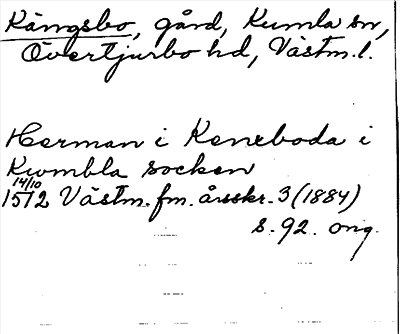 Kängsbo, gård, Kumla sn,
Övertjurbo hd, Västm. l.
Herman i Kenxboda i
Kwmbla socken
14/10
1512 Västm. fm. årsskr. 3 (1884)
s. 92. orig.